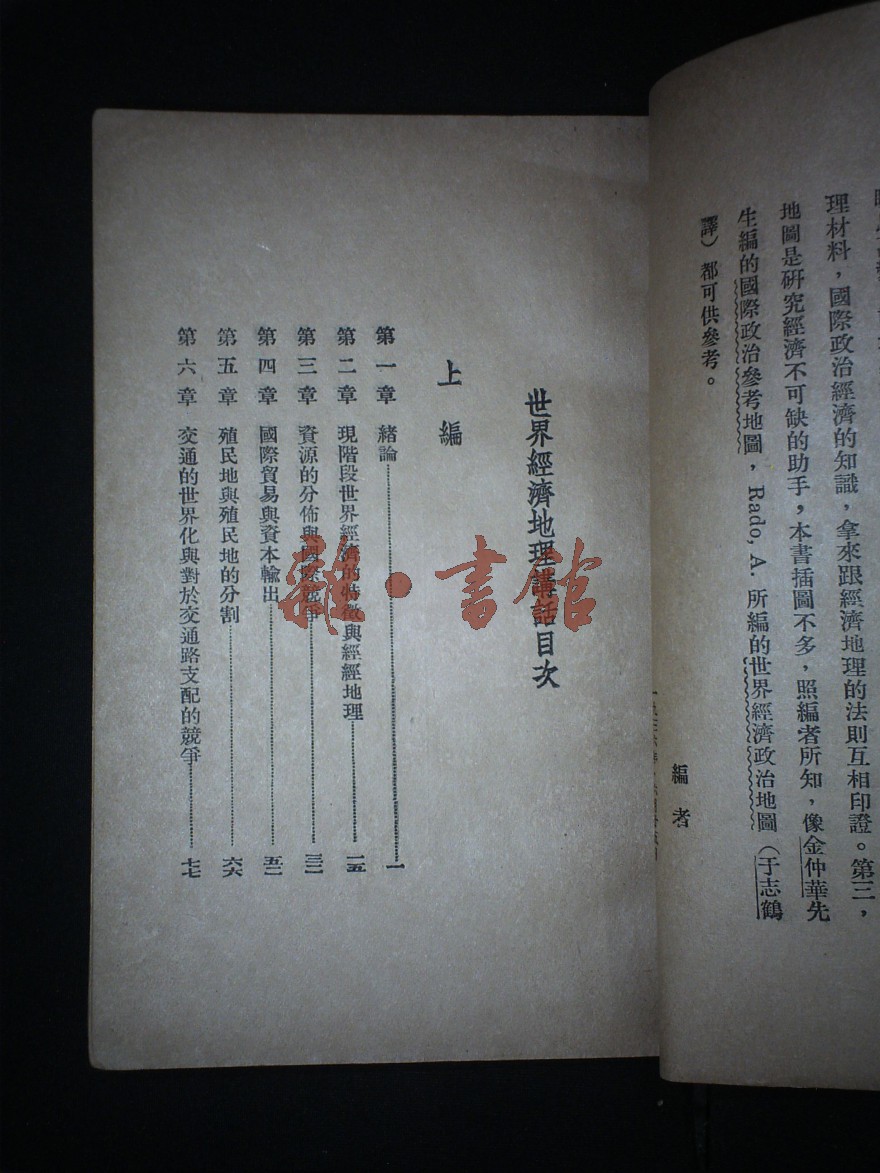 理材料，國際政治經濟的知識，拿來跟經濟地理的法則互相印證。第三，
地圖是研究經濟不可缺的助手，本書插圖不多，照編者所知，像金仲華先
生編的國際政治參考地圖，Rado, A. 所編的世界經濟政治地圖（于志鶴
譯）都可供參考。
編者
世界經濟地理講話目次
上編
第一章 緒論 一
第二章 現階段世界經濟的特徵與經經地理 一五
第三章 資源的分佈與國際競爭 三二
第四章 國際貿易與資本輸出 五二
第五章 殖民地與殖民地的分割 六六
第六章 交通的世界化與對於交通路支配的競爭 七七
雜·書館